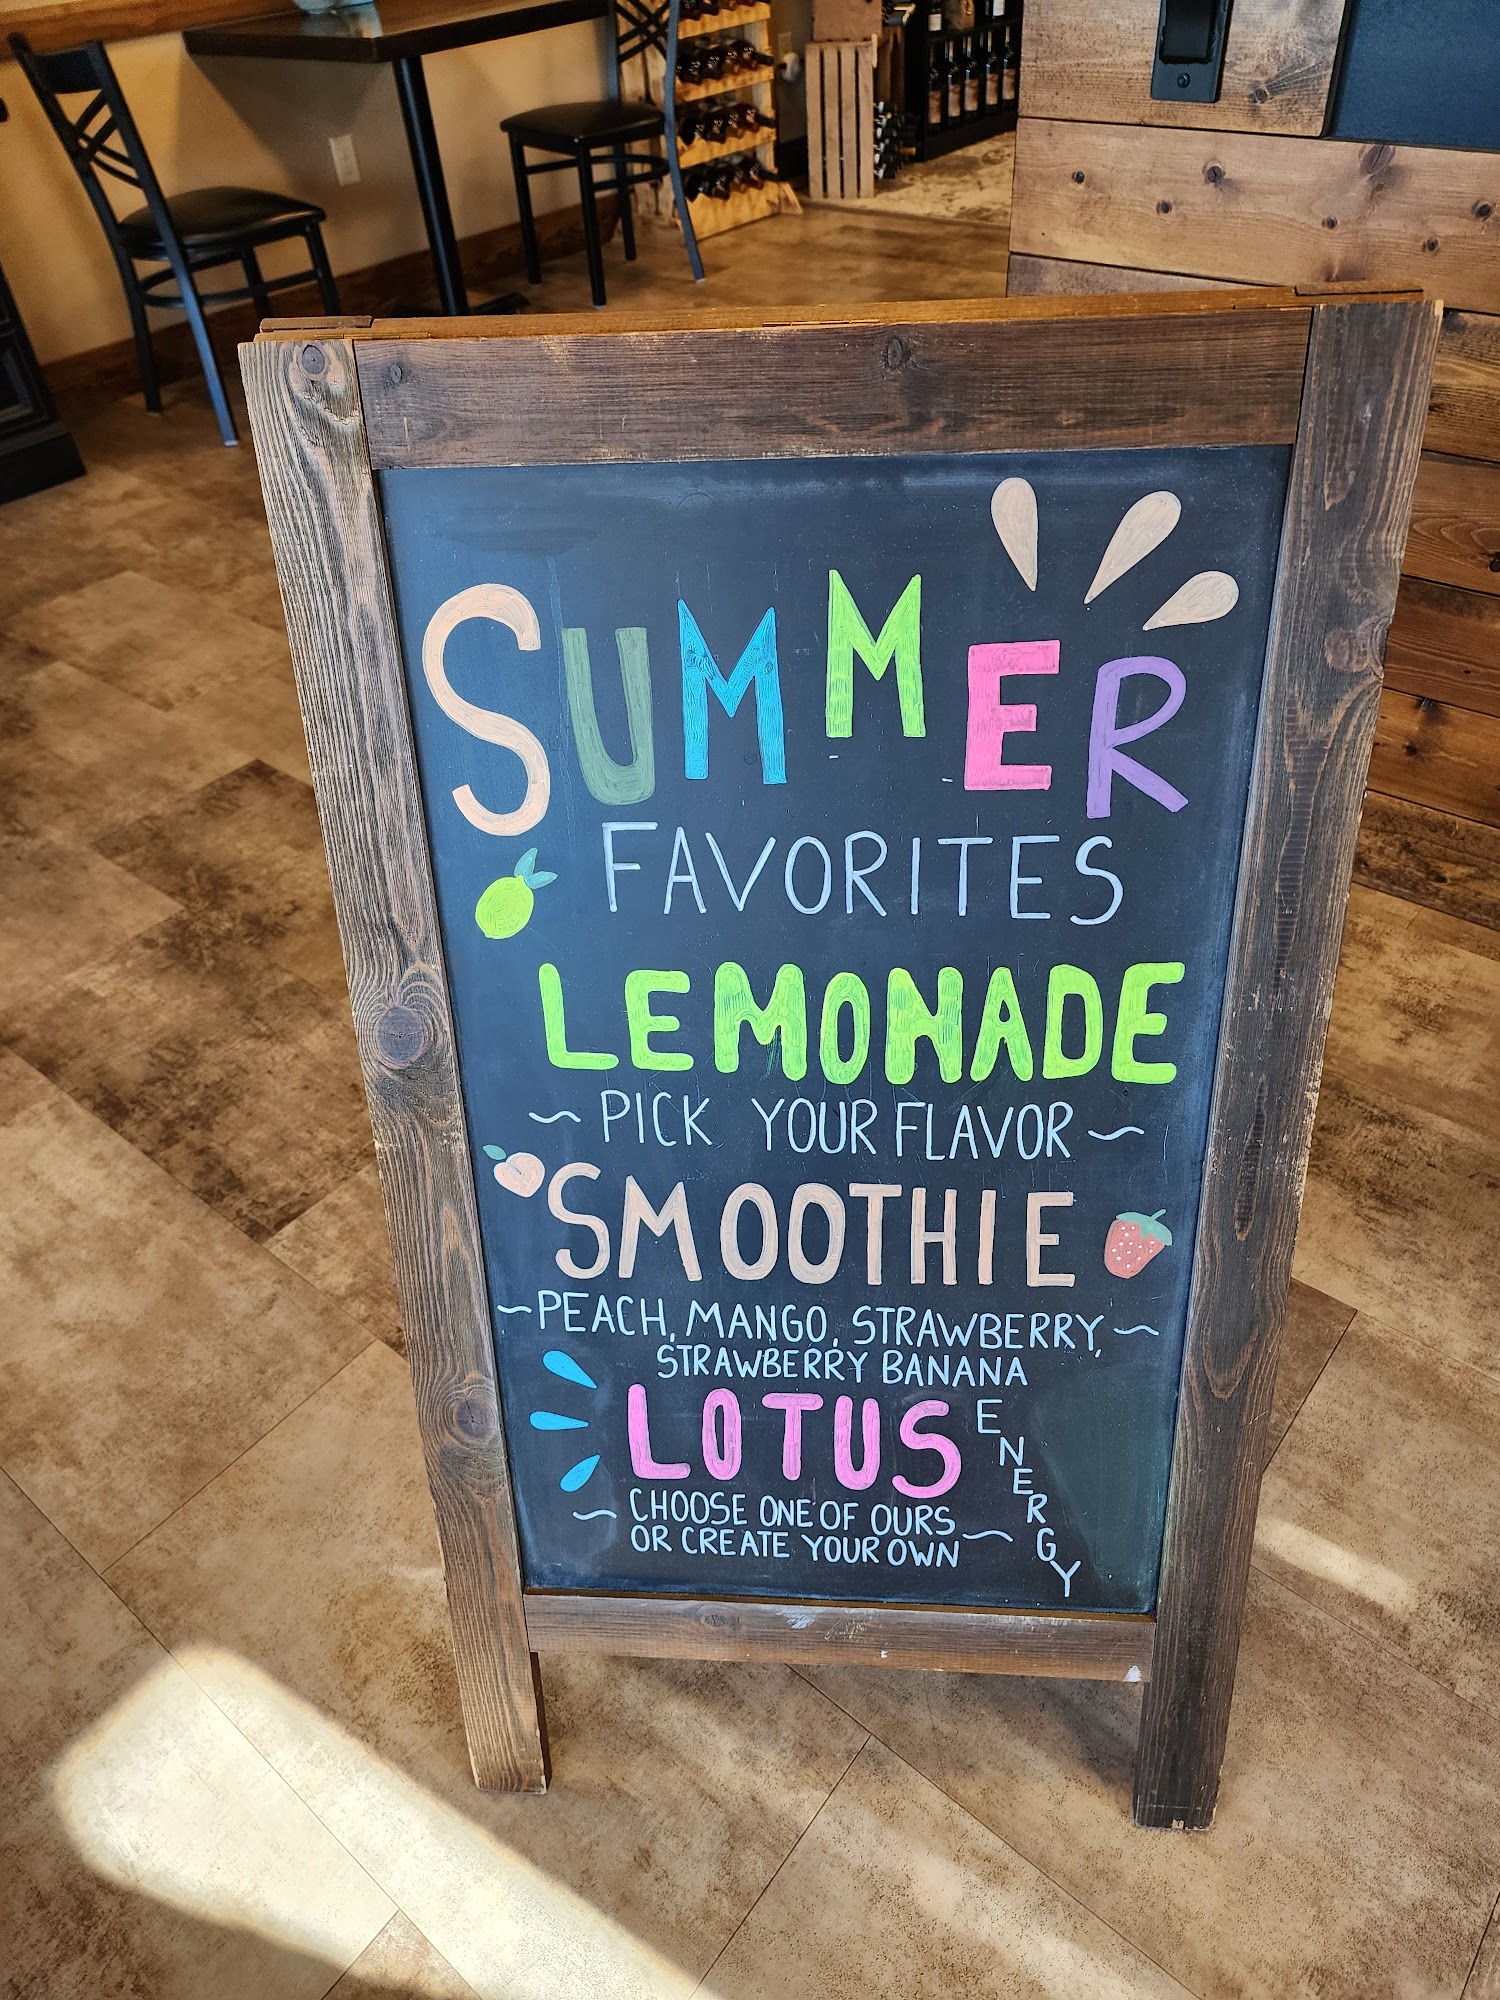 SUMMER
FAVORITES
LEMONADE
~ PICK YOUR FLAVOR ~
SMOOTHIE
~ PEACH, MANGO, STRAWBERRY, ~
STRAWBERRY BANANA
LOTUS ENERGY
~ CHOOSE ONE OF OURS ~
OR CREATE YOUR OWN